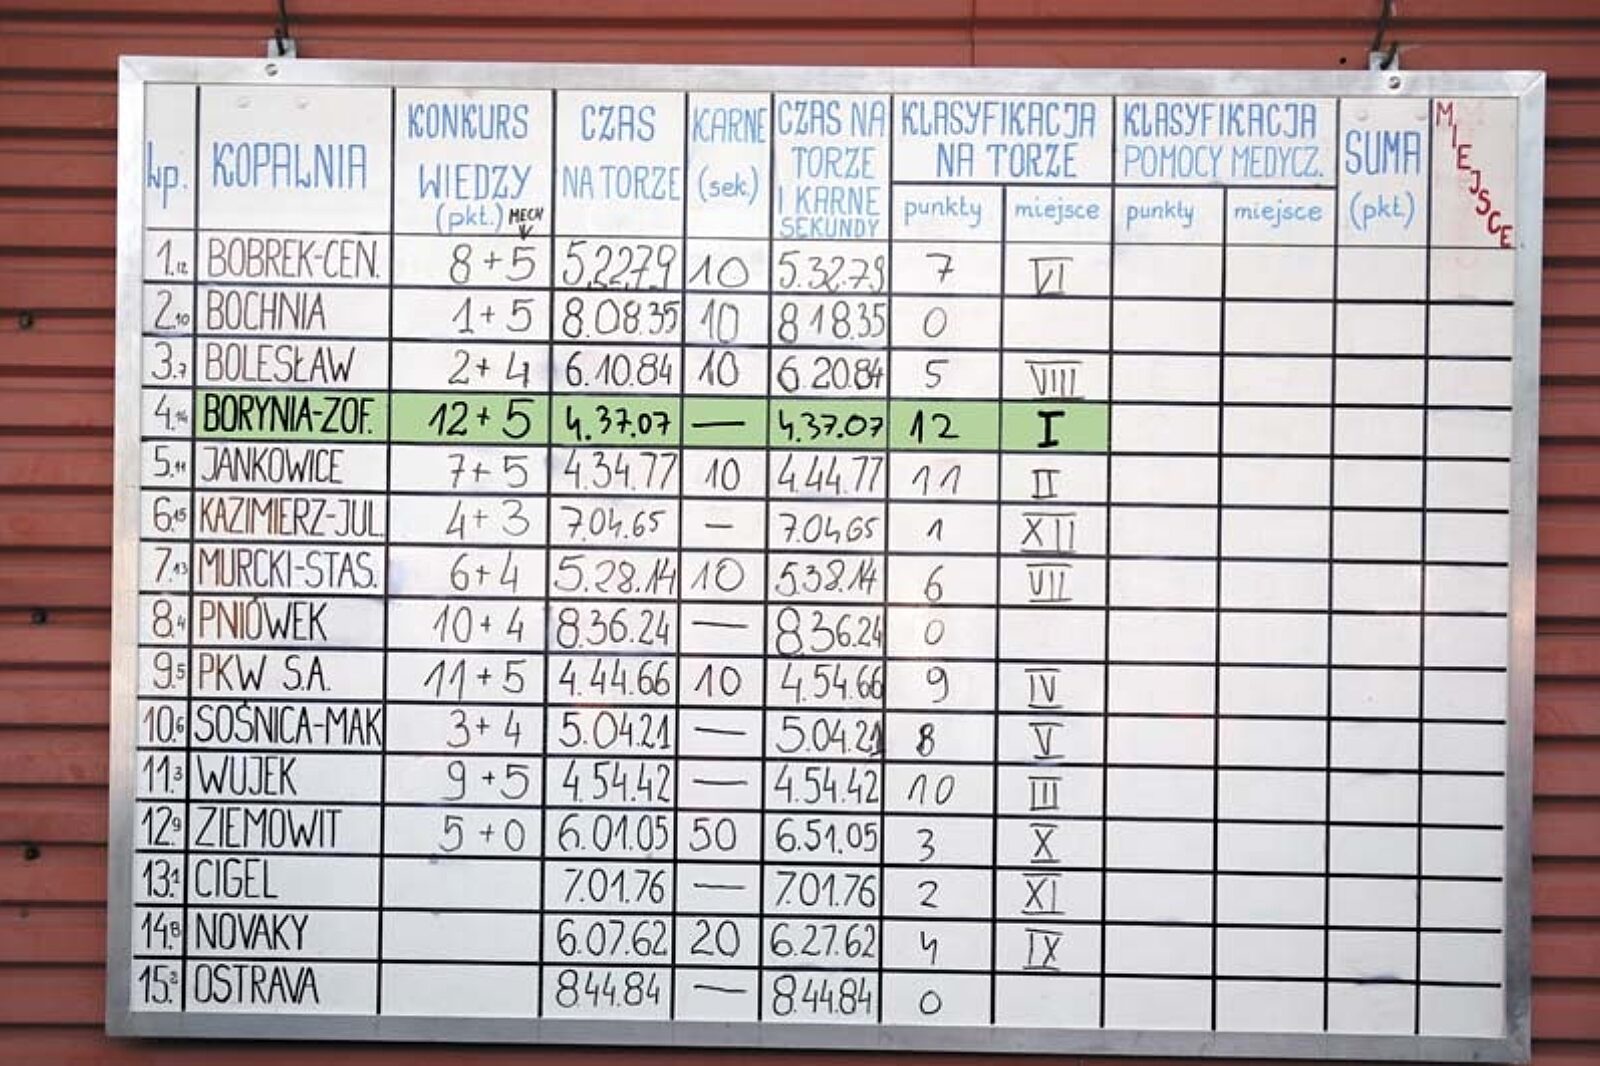 Lp. KOPALNIA KONKURS WIEDZY (pkt.) MECH CZAS NA TORZE KARNE (sek.) CZAS NA TORZE I KARNE SEKUNDY KLASYFIKACJA NA TORZE punkty miejsce KLASYFIKACJA POMOCY MEDYCZ. punkty miejsce SUMA (pkt.) MIEJSCE
1. 12 BOBREK-CEN. 8+5 5.22.79 10 5.32.79 7 VI
2. 10 BOCHNIA 1+5 8.08.35 10 8.18.35 0
3. 7 BOLESŁAW 2+4 6.10.84 10 6.20.84 5 VIII
4. 14 BORYNIA-ZOF. 12+5 4.37.07 — 4.37.07 12 I
5. 11 JANKOWICE 7+5 4.34.77 10 4.44.77 11 II
6. 15 KAZIMIERZ-JUL. 4+3 7.04.65 — 7.04.65 1 XII
7. 13 MURCKI-STAS. 6+4 5.28.14 10 5.38.14 6 VII
8. 4 PNIÓWEK 10+4 8.36.24 — 8.36.24 0
9. 5 PKW S.A. 11+5 4.44.66 10 4.54.66 9 IV
10. 6 SOŚNICA-MAK 3+4 5.04.21 — 5.04.21 8 V
11. 3 WUJEK 9+5 4.54.42 — 4.54.42 10 III
12. 9 ZIEMOWIT 5+0 6.01.05 50 6.51.05 3 X
13. 1 CIGEL 7.01.76 — 7.01.76 2 XI
14. 8 NOVAKY 6.07.62 20 6.27.62 4 IX
15. 2 OSTRAVA 8.44.84 — 8.44.84 0